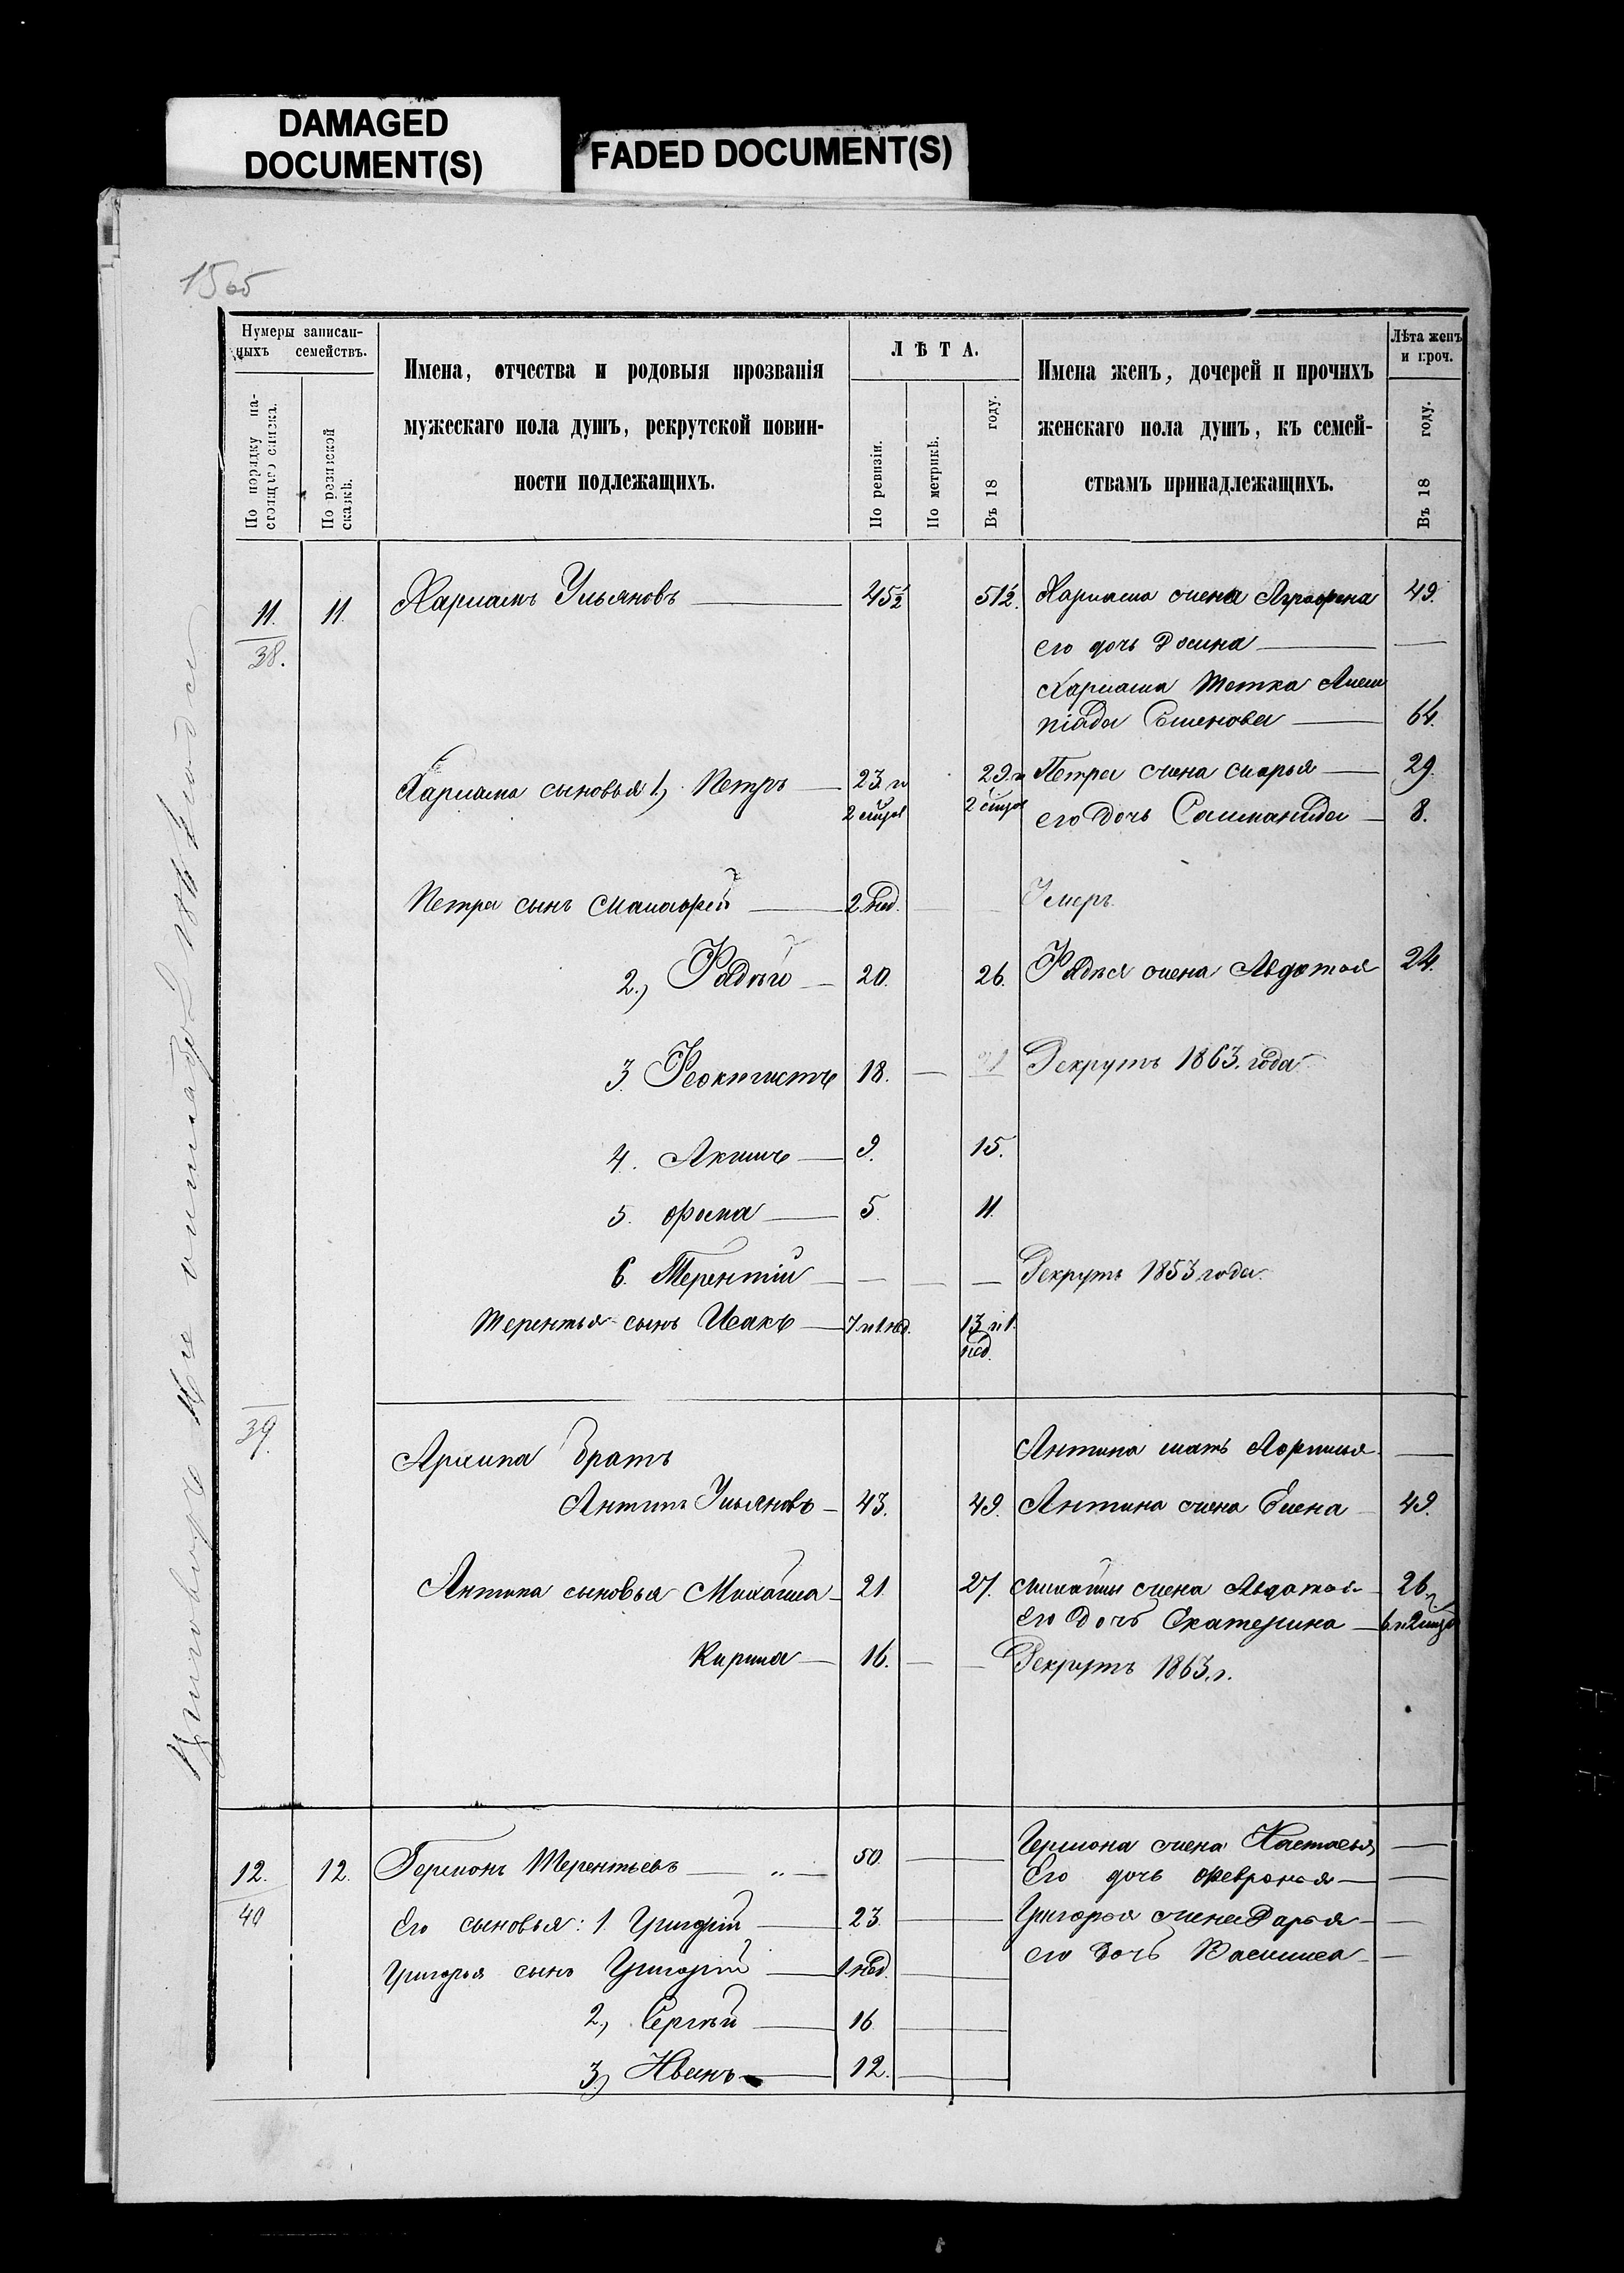 DAMAGED
DOCUMENT(S)
FADED DOCUMENT(S)
15об
Нумеры записан-
ныхъ семействъ.
По порядку на-
стоящаго списка.
По ревизской
сказкѣ.
Имена, отчества и родовыя прозванія
мужескаго пола душъ, рекрутской повин-
ности подлежащихъ.
ЛѢТА.
По ревизіи.
По метрикѣ.
Въ 18 году.
Имена женъ, дочерей и прочихъ
женскаго пола душъ, къ семей-
ствамъ принадлежащихъ.
Лѣта женъ
и проч.
Въ 18 году.
11. 11. Харламъ Ульяновъ 45½ 51½. Харлама жена Аграфена 49.
38. его дочь
Харлама тетка
64.
Харлама сыновья 1) Петръ 23. и 29. и Петра жена Марья 29.
2 2 его дочь 8.
Петра сынъ 2. нед. Умеръ
2.) Фадѣй 20. 26. Фадѣя жена Авдотья 24.
3. Феоктистъ 18. Рекрутъ 1863. года
4. Акимъ 9. 15.
5. Фома 5. 11.
6. Терентій Рекрутъ 1853 года.
Терентья сынъ Исакъ 7 и 1 нед. 13 и 1.
нед.
39. Антипа мать
братъ
Антипъ Ульяновъ 43. 49. Антипа жена Елена 49.
Антипа сыновья Михайла 21. 27. Михайлы жена Авдотья 26.
Его дочь Екатерина
Кирила 16. Рекрутъ 1863. г.
12. 12. Гермонъ Терентьевъ 50. Гермона жена Настасья
40 Его дочь Февронья
Его сыновья: 1. Григорій 23. Григорья жена Дарья
Григорья сынъ Григорій 1 нед. его дочь Василиса
2., Сергѣй 16
3) Иванъ 12.